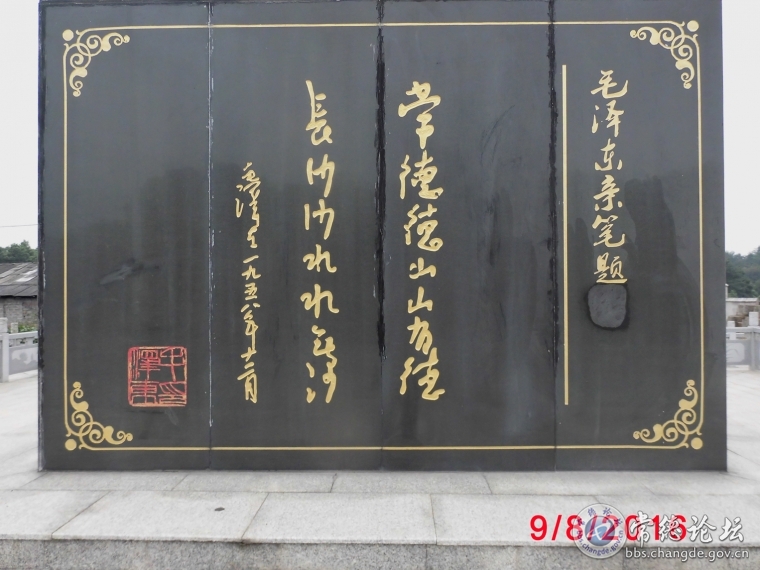 毛泽东亲笔题
常德德山山有德
長沙沙水水無沙
毛澤东一九五八年十二月
毛印澤東
9/8/2016
常德论坛
bbs.changde.gov.cn